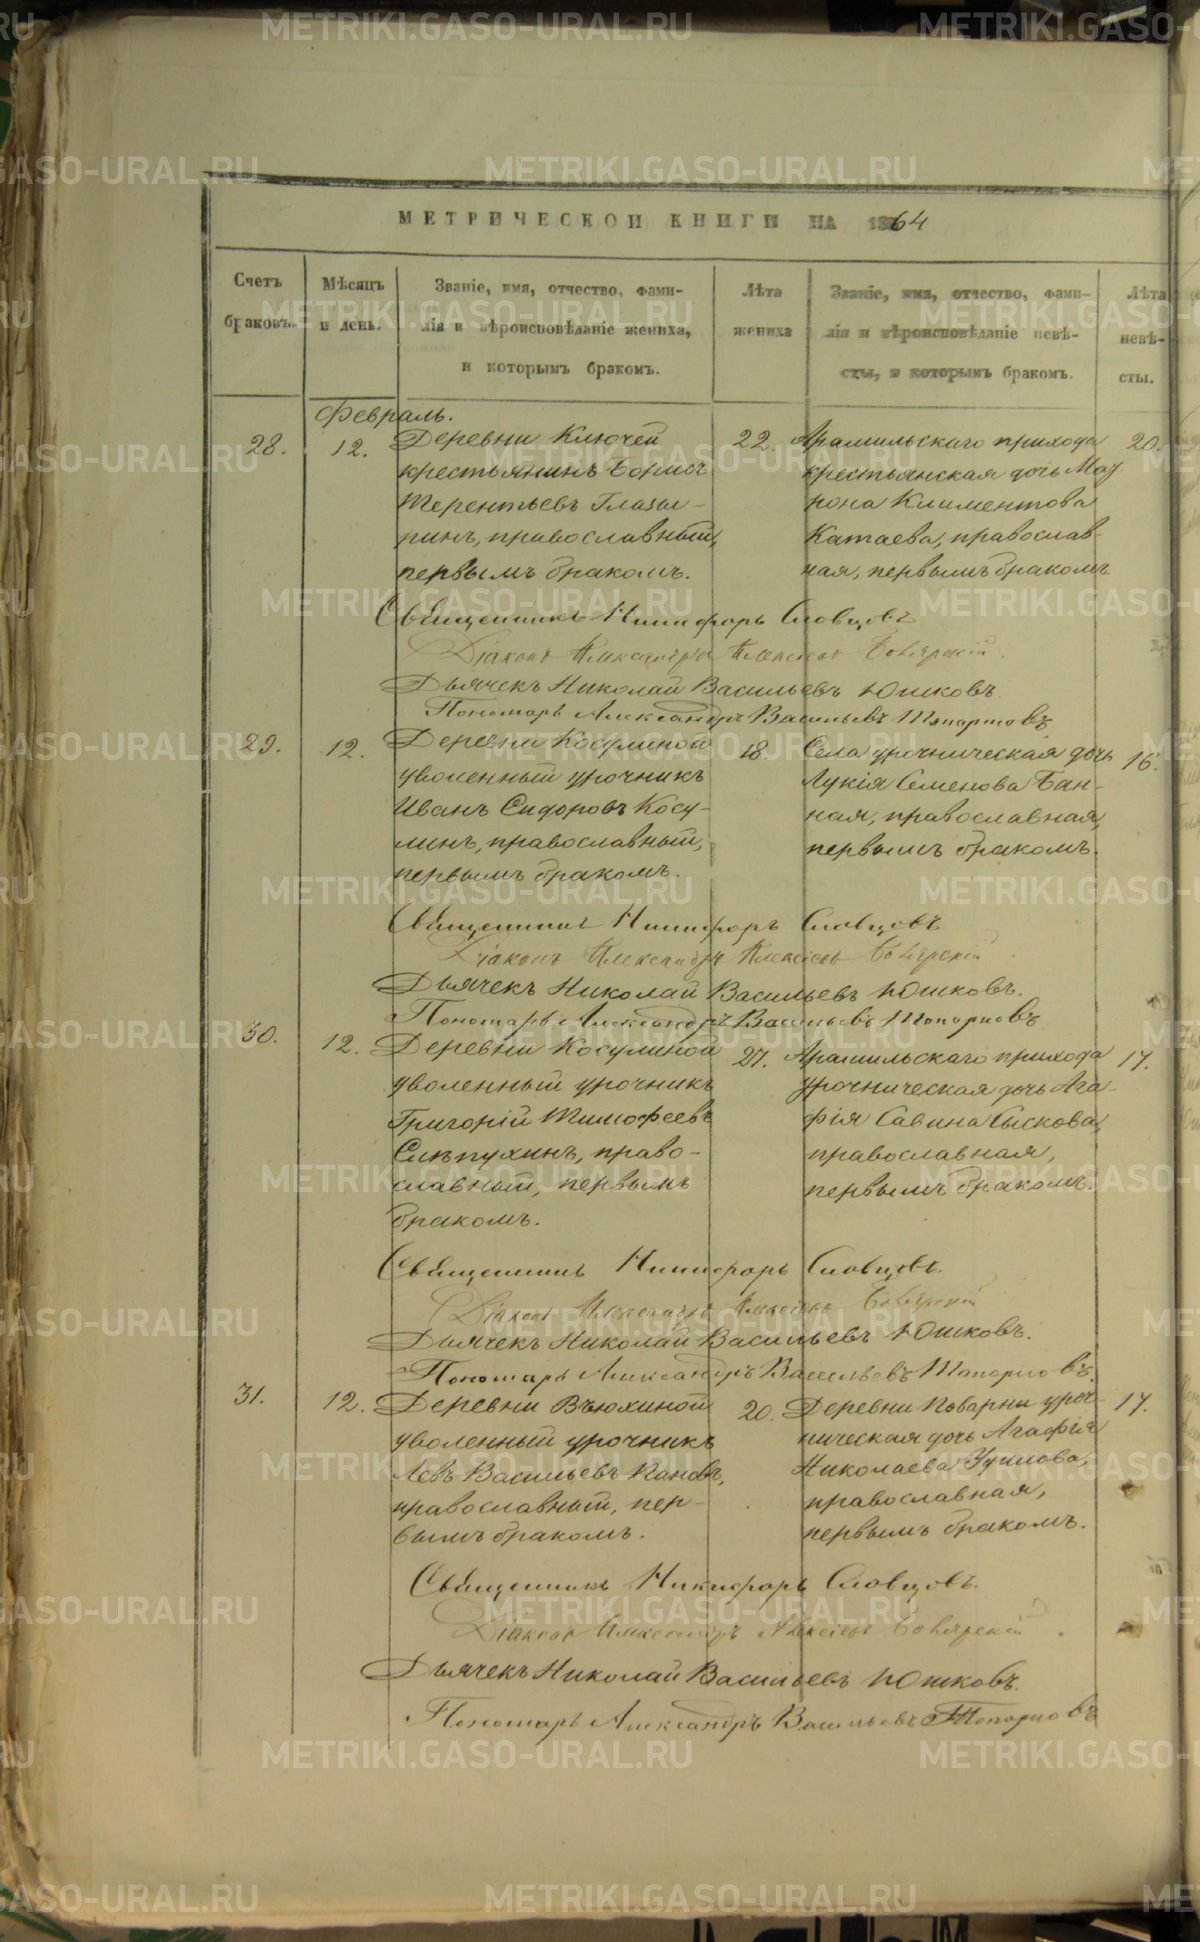 МЕТРИЧЕСКОЙ КНИГИ НА 1864
Счетъ браковъ.
Мѣсяцъ и день.
Званіе, имя, отчество, фами-
лія и вѣроисповѣданіе жениха,
и которымъ бракомъ.
Лѣта жениха
Званіе, имя, отчество, фами-
лія и вѣроисповѣданіе невѣ-
сты, и которымъ бракомъ.
Лѣта невѣ-
сты.
Февраль.
28. 12.
Деревни Ключей
крестьянинъ Борисъ
Терентьевъ Глазы-
ринъ, православный,
первымъ бракомъ.
22.
Арамильскаго прихода
крестьянская дочь Мат-
рона Климентова
Катаева, православ-
ная, первымъ бракомъ
20.
Священникъ Никифоръ Словцовъ
Діаконъ Александръ Алексіевъ
Дьячекъ Николай Васильевъ Юшковъ.
Пономарь Александръ Васильевъ Топорковъ
29. 12.
Деревни Косулиной
уволенный урочникъ
Иванъ Сидоровъ Косу-
линъ, православный,
первымъ бракомъ.
18.
Села урочническая дочь
Лукія Семенова Бан-
ная, православная,
первымъ бракомъ.
16.
Священникъ Никифоръ Словцовъ
Діаконъ Александръ Алексіевъ
Дьячекъ Николай Васильевъ Юшковъ.
Пономарь Александръ Васильевъ Топорковъ
30. 12.
Деревни Косулиной
уволенный урочникъ
Григорій Тимофеевъ
Слѣпухинъ, право-
славный, первымъ
бракомъ.
27.
Арамильскаго прихода
урочническая дочь Ага-
фія Савина Сыскова,
православная,
первымъ бракомъ.
17.
Священникъ Никифоръ Словцовъ.
Діаконъ Александръ Алексіевъ
Дьячекъ Николай Васильевъ Юшковъ.
Пономарь Александръ Васильевъ Топорковъ.
31. 12.
Деревни Вьюхиной
уволенный урочникъ
Левъ Васильевъ Пановъ,
православный, пер-
вымъ бракомъ.
20.
Деревни Поварни уроч-
ническая дочь Агафія
Николаева
православная,
первымъ бракомъ.
17.
Священникъ Никифоръ Словцовъ.
Діаконъ Александръ Алексіевъ
Дьячекъ Николай Васильевъ Юшковъ.
Пономарь Александръ Васильевъ Топорковъ
METRIKI.GASO-URAL.RU